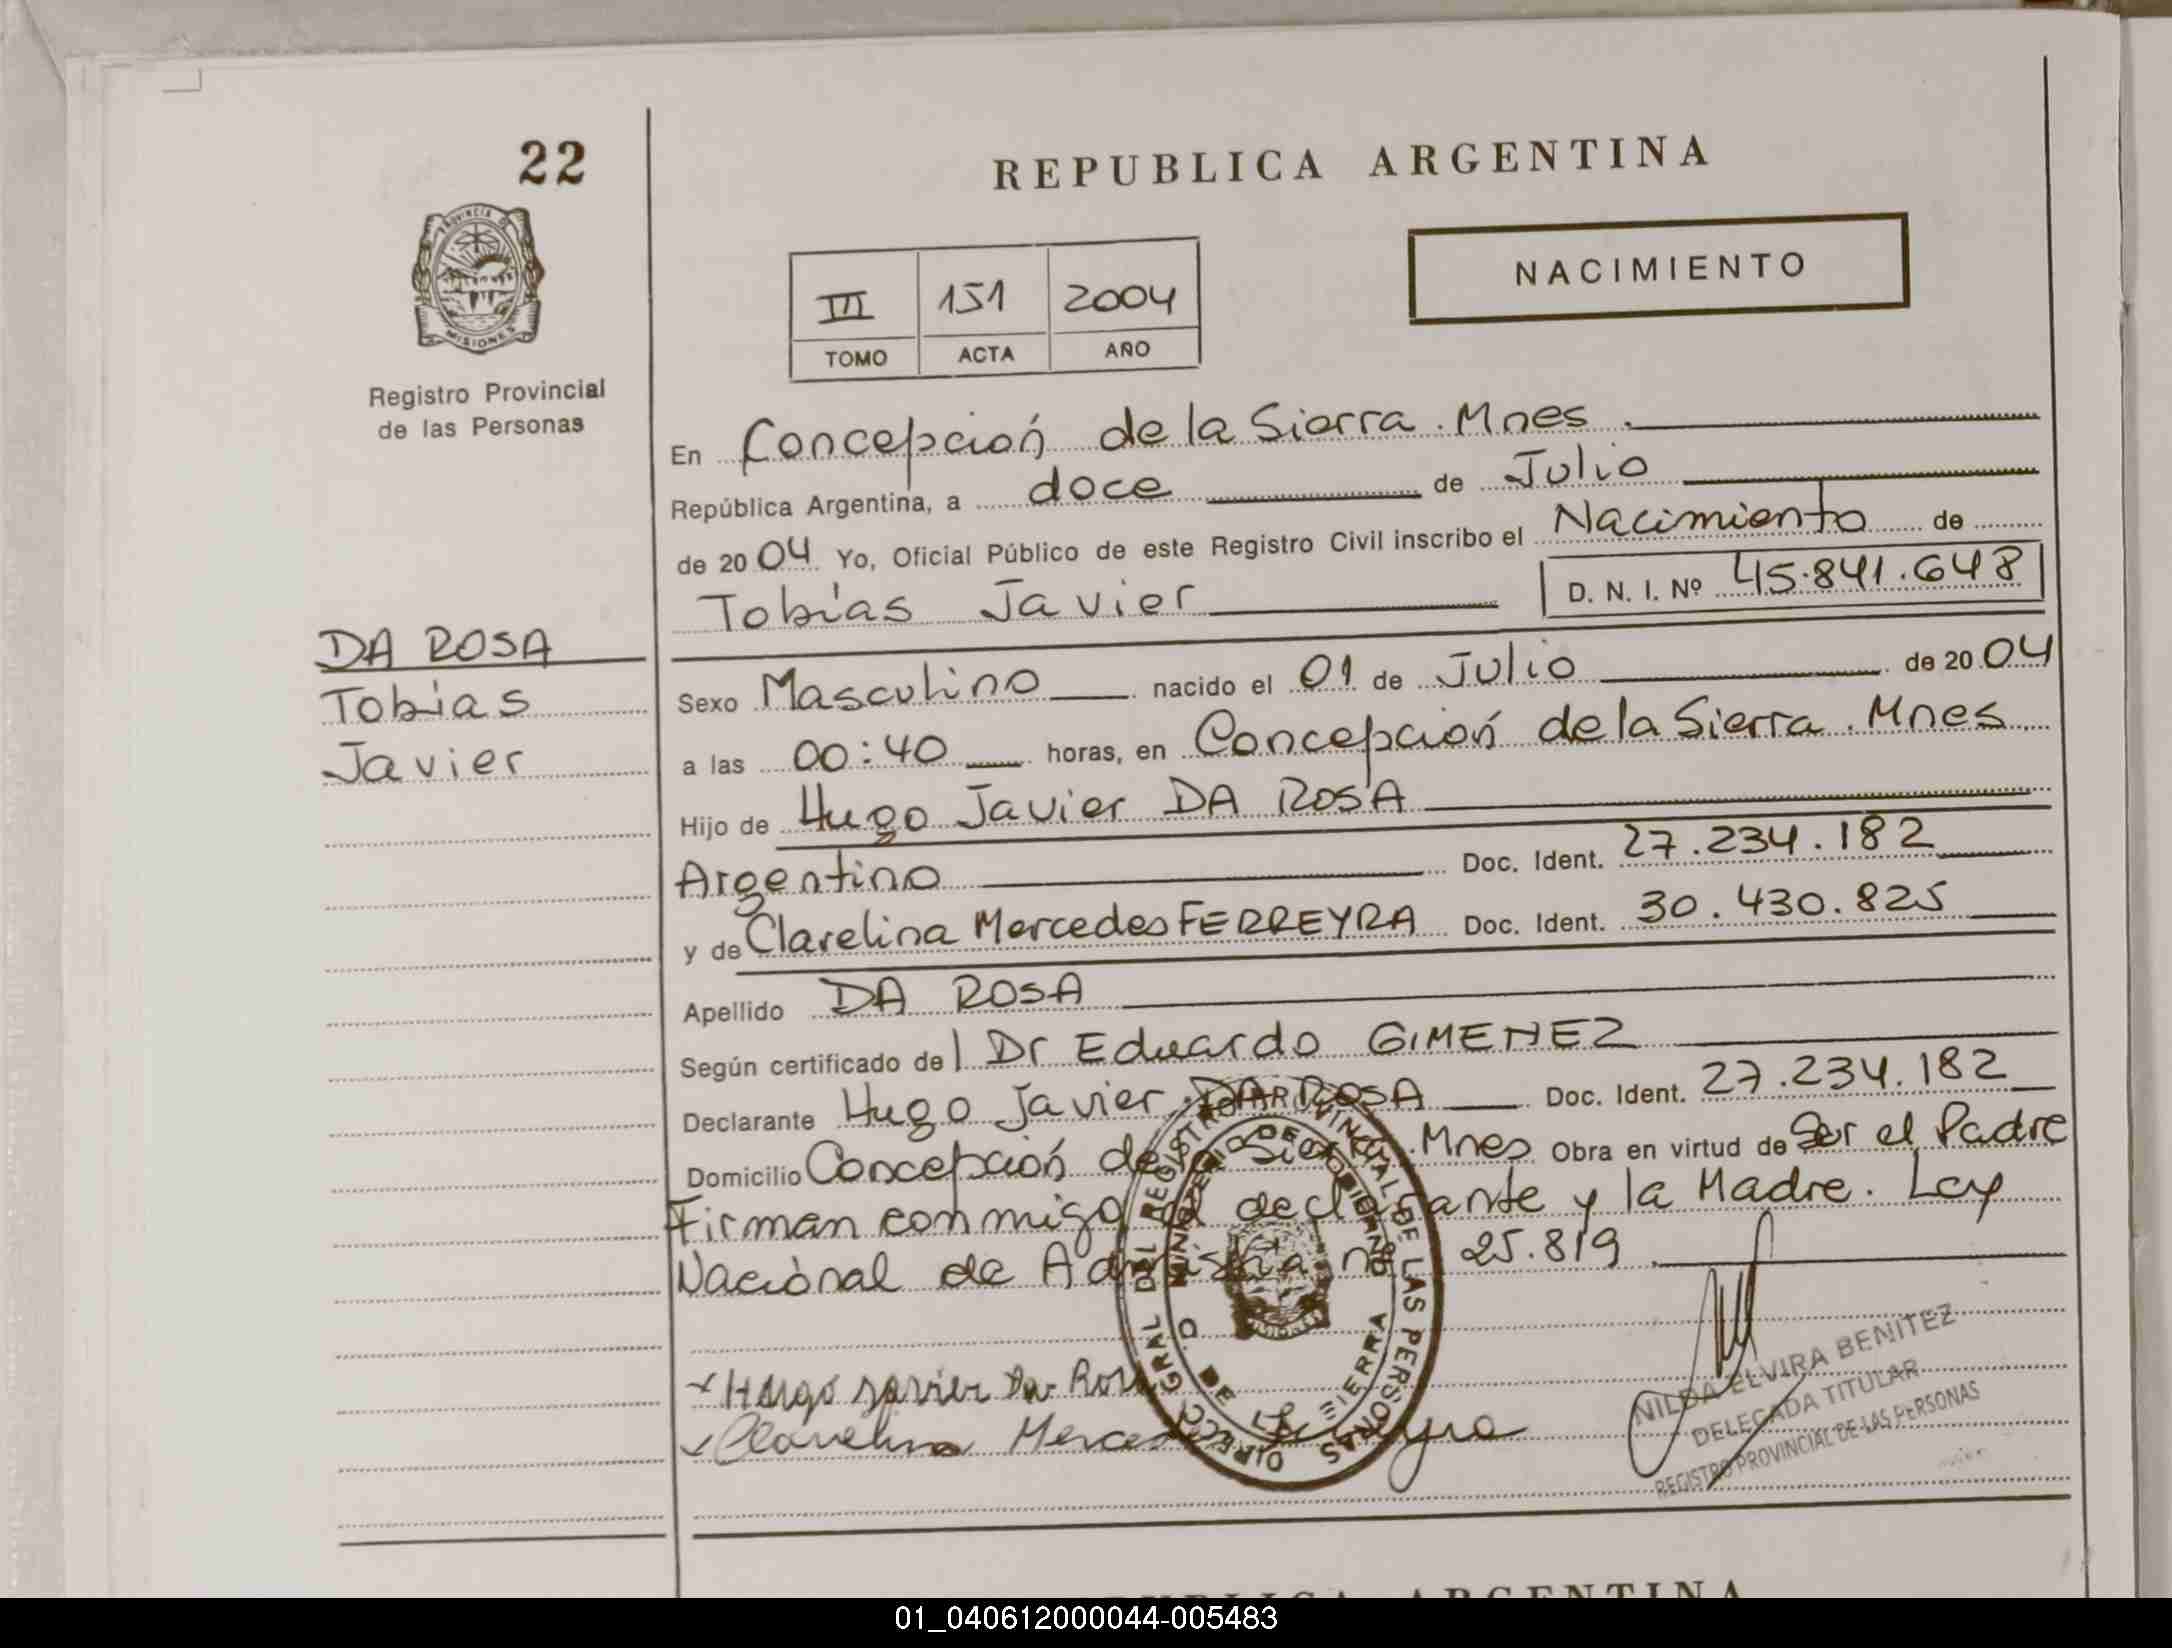 22
REPUBLICA ARGENTINA
PROVINCIA DE
MISIONES
NACIMIENTO
III 151 2004
TOMO ACTA AÑO
Registro Provincial
de las Personas
En Concepción de la Sierra. Mnes.
República Argentina, a doce de Julio
de 2004 Yo, Oficial Público de este Registro Civil inscribo el Nacimiento de
Tobías Javier D. N. I. Nº 45.841.648
DA ROSA
Tobias
Javier
Sexo Masculino nacido el 01 de Julio de 2004
a las 00:40 horas, en Concepción de la Sierra. Mnes
Hijo de Hugo Javier DA ROSA
Argentino Doc. Ident. 27.234.182
y de Clarelina Mercedes FERREYRA Doc. Ident. 30.430.825
Apellido DA ROSA
Según certificado del Dr Eduardo GIMENEZ
Declarante Hugo Javier DA ROSA Doc. Ident. 27.234.182
Domicilio Concepción de la Sierra. Mnes Obra en virtud de Ser el Padre
Firman conmigo el declarante y la Madre. Ley
Nacional de Amnistía nº 25.819
Hugo Javier Da Rosa
Clarelina Mercedes Ferreyra
DIRECC. GRAL DEL REGISTRO PROVINCIAL DE LAS PERSONAS
MINISTERIO DE GOBIERNO
DE
SIERRA
NILDA ELVIRA BENITEZ
DELEGADA TITULAR
REGISTRO PROVINCIAL DE LAS PERSONAS
REPUBLICA ARGENTINA
01_040612000044-005483